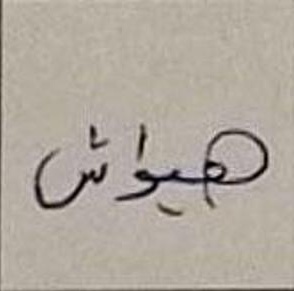 هيواش